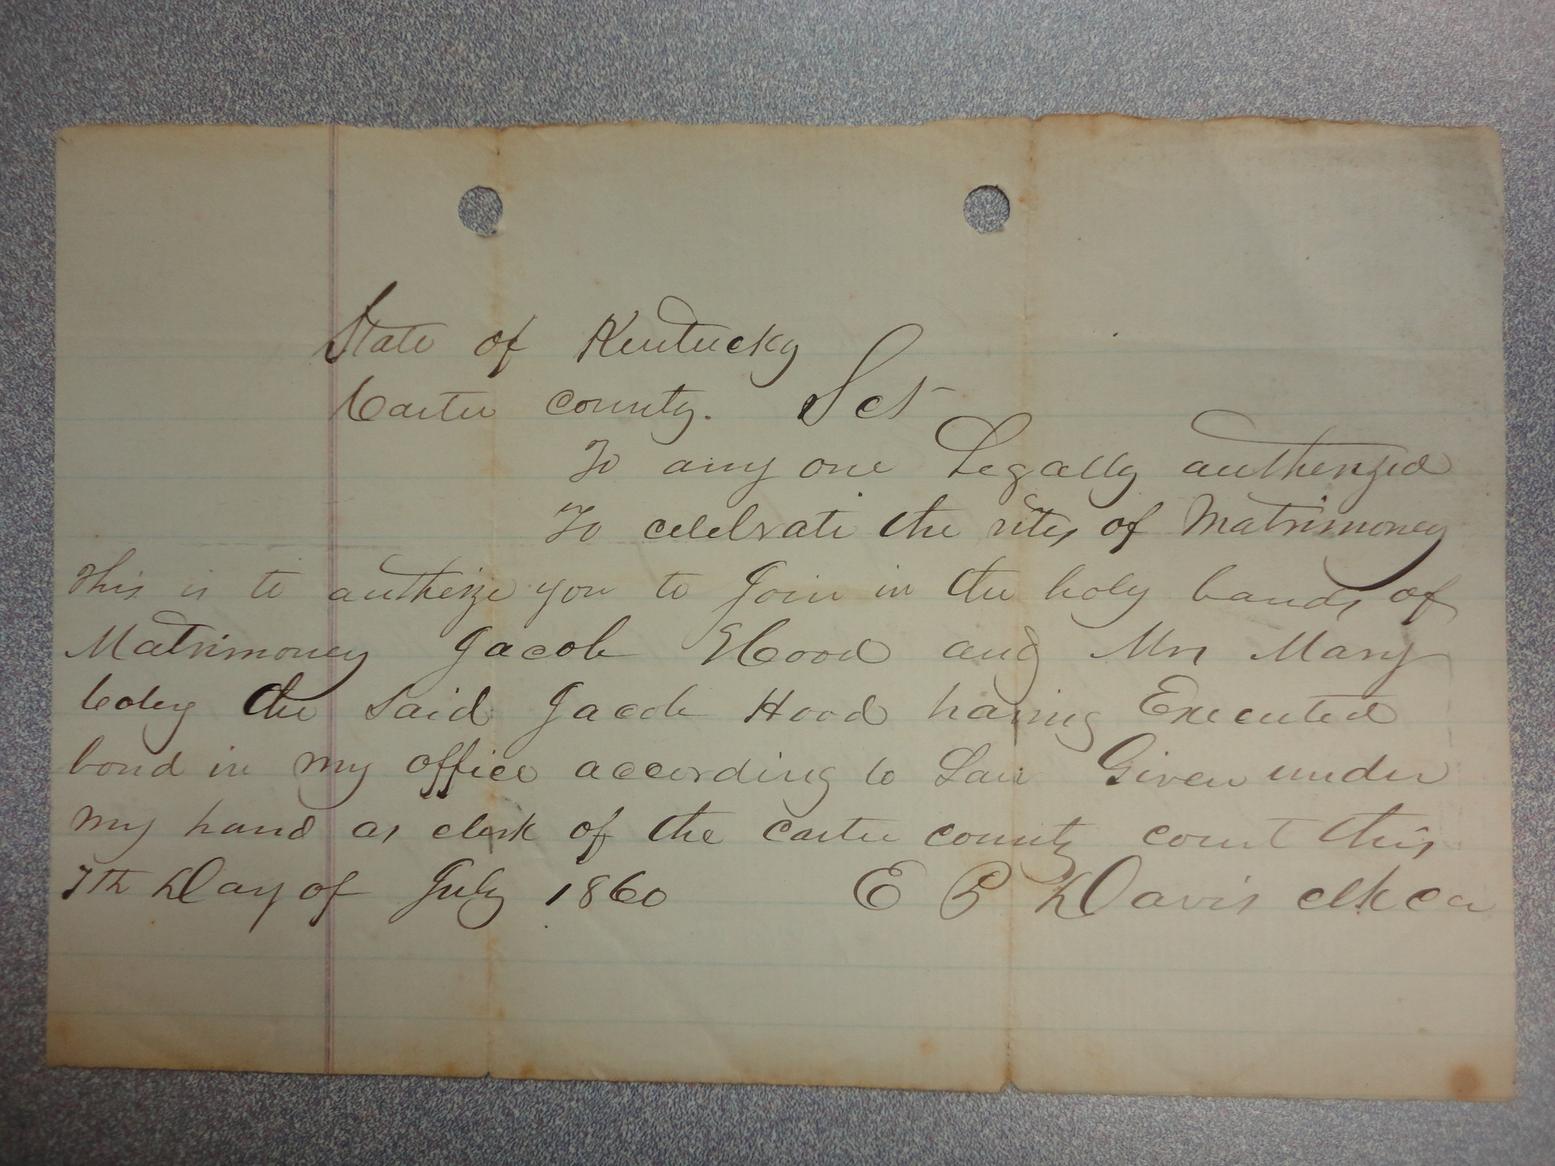 State of Kentucky
Carter county. Sct
To any one Legally autherized
To celebrate the rites of Matrimoney
This is to autherize you to Join in the holy bands of
Matrimoney Jacob Hood and Mrs Mary
Coley the said Jacob Hood having Executed
bond in my office according to Law Given under
my hand as clerk of the carter county court this
7th Day of July 1860 E B Davis clk